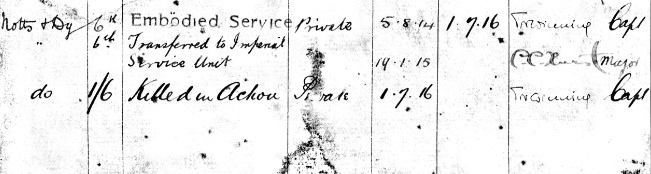 Notts & Dy 6th Embodied Service Private 5.8.14 1.7.16 Capt
" 6th Transferred to Imperial
Service Unit 19.1.15 Major
do 1/6 Killed in Action Private 1.7.16 Capt